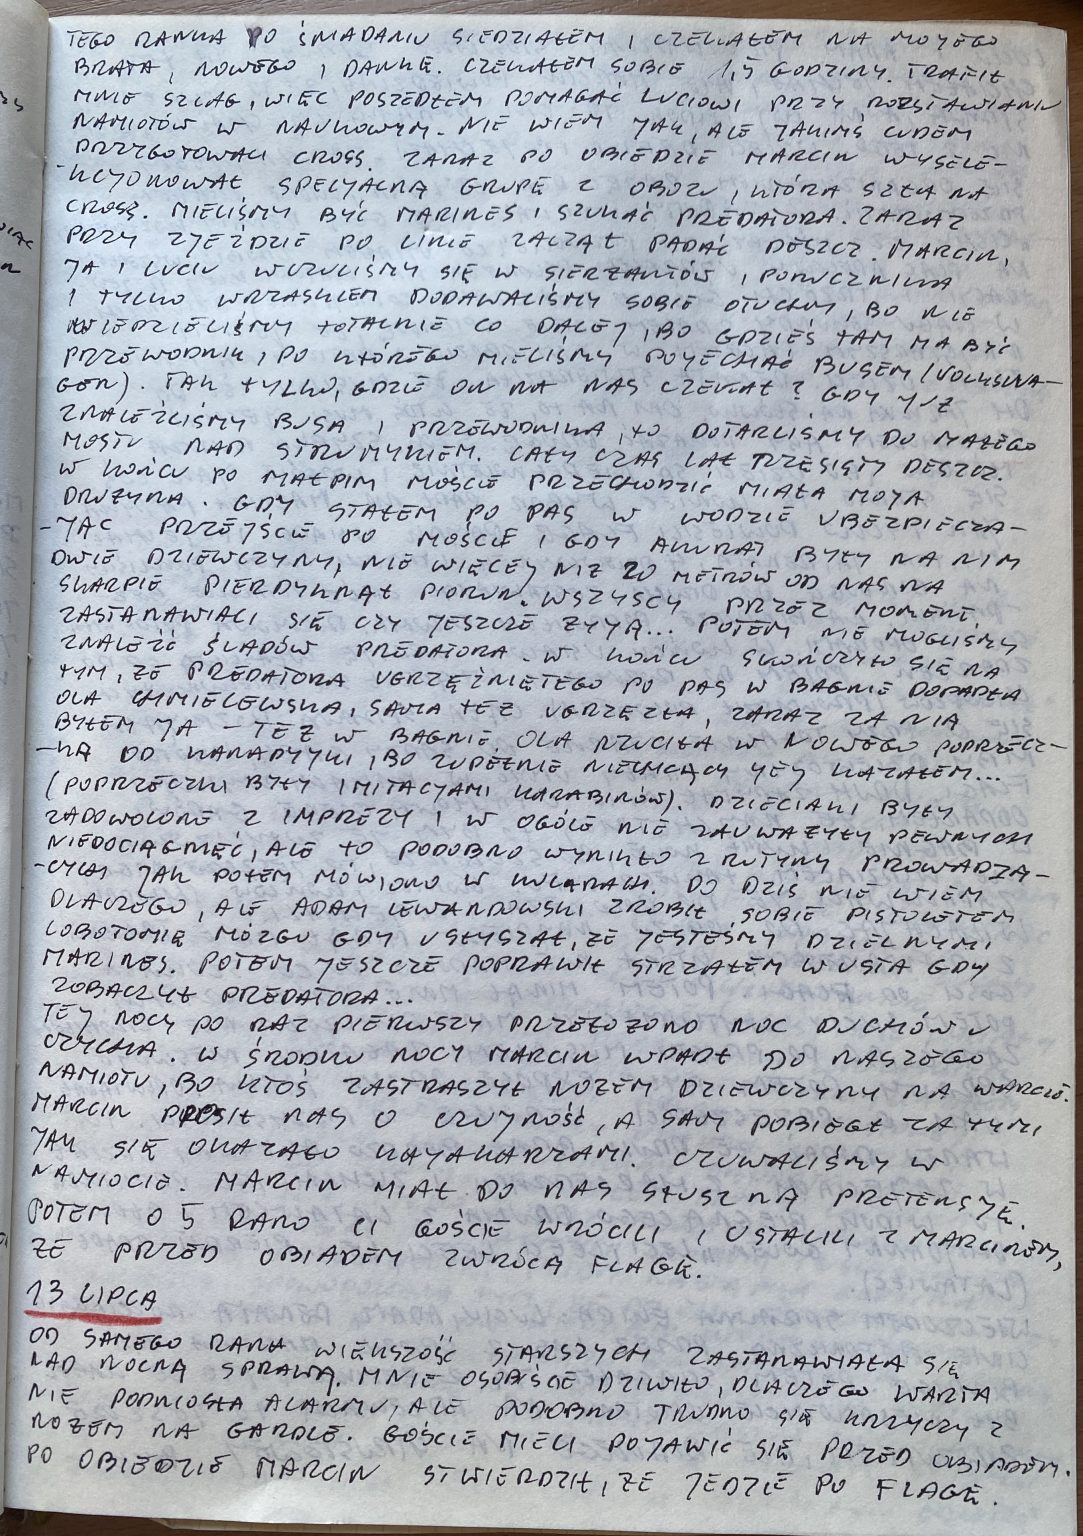 TEGO RANKA PO ŚNIADANIU SIEDZIAŁEM I CZEKAŁEM NA MOJEGO
BRATA, NOWEGO I DANKĘ. CZEKAŁEM SOBIE 1,5 GODZINY. TRAFIŁ
MNIE SZLAG, WIĘC POSZEDŁEM POMAGAĆ LUCIOWI PRZY ROZSTAWIANIU
NAMIOTÓW W NAUKOWYM. NIE WIEM JAK, ALE JAKIMŚ CUDEM
PRZYGOTOWALI CROSS. ZARAZ PO OBIEDZIE MARCIN WYSELE-
-KCJONOWAŁ SPECJALNĄ GRUPĘ Z OBOZU, KTÓRA SZŁA NA
CROSS. MIELIŚMY BYĆ MARINES I SZUKAĆ PREDATORA. ZARAZ
PRZY ZJEŹDZIE PO LINIE ZACZĄŁ PADAĆ DESZCZ. MARCIN,
JA I LUCIU WCZULIŚMY SIĘ W SIERŻANTÓW I PORUCZNIKA
I TYLKO WRZASKIEM DODAWALIŚMY SOBIE OTUCHY, BO NIE
WIEDZIELIŚMY TOTALNIE CO DALEJ, BO GDZIEŚ TAM MA BYĆ
PRZEWODNIK, PO KTÓREGO MIELIŚMY POJECHAĆ BUSEM (VOLKSWA-
GEN). TAK TYLKO, GDZIE ON NA NAS CZEKAŁ? GDY JUŻ
ZNALEŹLIŚMY BUSA I PRZEWODNIKA, TO DOTARLIŚMY DO MAŁEGO
MOSTU NAD STRUMYKIEM. CAŁY CZAS LAŁ RZĘSISTY DESZCZ.
W KOŃCU PO MAŁPIM MOŚCIE PRZECHODZIĆ MIAŁA MOJA
DRUŻYNA. GDY STAŁEM PO PAS W WODZIE UBEZPIECZA-
-JĄC PRZEJŚCIE PO MOŚCIE I GDY AKURAT BYŁY NA NIM
DWIE DZIEWCZYNY, NIE WIĘCEJ NIŻ 20 METRÓW OD NAS NA
SKARPIE PIERDYKNĄŁ PIORUN. WSZYSCY PRZEZ MOMENT
ZASTANAWIALI SIĘ CZY JESZCZE ŻYJĄ... POTEM NIE MOGLIŚMY
ZNALEŹĆ ŚLADÓW PREDATORA. W KOŃCU SKOŃCZYŁO SIĘ NA
TYM, ŻE PREDATORA UGRZĘŹNIĘTEGO PO PAS W BAGNIE DOPADŁA
OLA CHMIELEWSKA, SAMA TEŻ UGRZĘZŁA, ZARAZ ZA NIĄ
BYŁEM JA - TEŻ W BAGNIE. OLA RZUCIŁA W NOWEGO POPRZECZ-
-KĄ OD KANADYJKI, BO ZUPEŁNIE NIECHCĄCY JEJ KAZAŁEM...
(POPRZECZKI BYŁY IMITACJAMI KARABINÓW). DZIECIAKI BYŁY
ZADOWOLONE Z IMPREZY I W OGÓLE NIE ZAUWAŻYŁY PEWNYCH
NIEDOCIĄGNIĘĆ, ALE TO PODOBNO WYNIKŁO Z RUTYNY PROWADZĄ-
-CYCH JAK POTEM MÓWIONO W KULARACH. DO DZIŚ NIE WIEM
DLACZEGO, ALE ADAM LEWANDOWSKI ZROBIŁ SOBIE PISTOLETEM
LOBOTOMIĘ MÓZGU GDY USŁYSZAŁ, ŻE JESTEŚMY DZIELNYMI
MARINES. POTEM JESZCZE POPRAWIŁ STRZAŁEM W USTA GDY
ZOBACZYŁ PREDATORA...
TEJ NOCY PO RAZ PIERWSZY PRZEŁOŻONO NOC DUCHÓW U
CZYCHA. W ŚRODKU NOCY MARCIN WPADŁ DO NASZEGO
NAMIOTU, BO KTOŚ ZASTRASZYŁ NOŻEM DZIEWCZYNY NA WARCIE.
MARCIN PROSIŁ NAS O CZUJNOŚĆ, A SAM POBIEGŁ ZA TYMI
JAK SIĘ OKAZAŁO KAJAKARZAMI. CZUWALIŚMY W
NAMIOCIE. MARCIN MIAŁ DO NAS SŁUSZNĄ PRETENSJĘ.
POTEM O 5 RANO CI GOŚCIE WRÓCILI I USTALILI Z MARCINEM,
ŻE PRZED OBIADEM ZWRÓCĄ FLAGĘ.
13 LIPCA
OD SAMEGO RANA WIĘKSZOŚĆ STARSZYCH ZASTANAWIAŁA SIĘ
NAD NOCNĄ SPRAWĄ. MNIE OSOBIŚCIE DZIWIŁO, DLACZEGO WARTA
NIE PODNIOSŁA ALARMU, ALE PODOBNO TRUDNO SIĘ KRZYCZY Z
NOŻEM NA GARDLE. GOŚCIE MIELI POJAWIĆ SIĘ PRZED OBIADEM.
PO OBIEDZIE MARCIN STWIERDZIŁ, ŻE JEDZIE PO FLAGĘ.